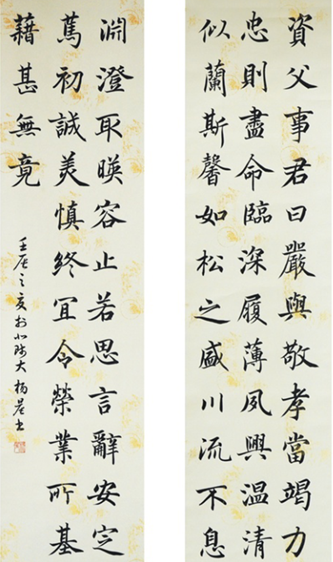 資父事君曰嚴與敬孝當竭力
忠則盡命臨深履薄夙興溫清
似蘭斯馨如松之盛川流不息
淵澄取暎容止若思言辭安定
篤初誠美慎終宜令榮業所基
藉甚無竟
壬辰之夏於